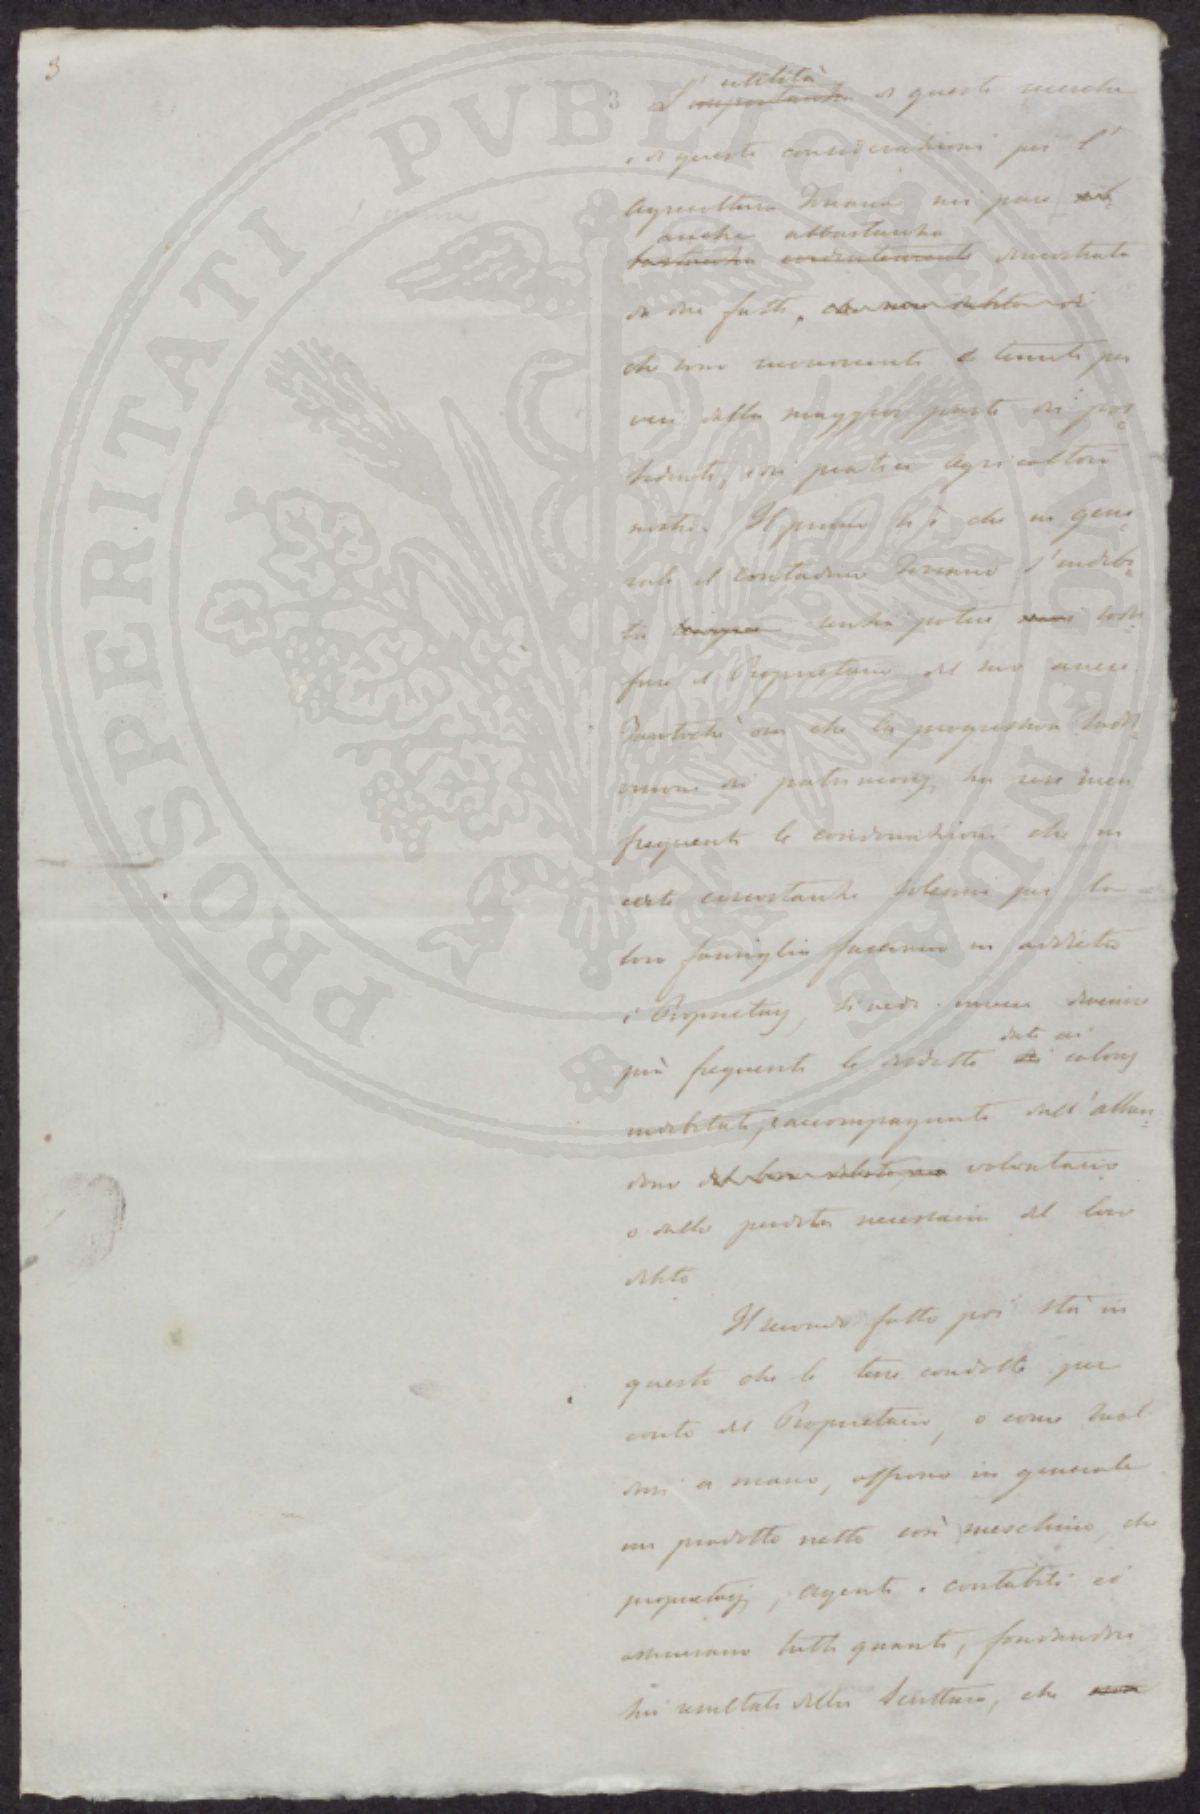 3
3
L' utilità importanza di queste ricerche
e di queste considerazioni per l'
Agricoltura Toscana mi pare ab-
anche abbastanza
bastanza evidentemente dimostrata
da due fatti, che non dubito di
che sono riconosciuti e tenuti per
veri dalla maggior parte dei pos-
sidenti, e dei pratici Agricoltori
nostri. Il primo si è che in gene-
rale il contadino Toscano s'indebi-
ta sempre senza potere mai sodis
fare il Proprietario del suo avere
Tantochè ora che la progressiva suddi-
visione dei patrimonj ha rese men
frequenti le condonazioni che in
certe circostanze solenni per la
loro famiglia facevano in addietro
i Proprietarj, si vede invece divenire
più frequenti le disdette date ai di colonj
indebitati, e accompagnate dall'abban-
dono del loro debito, ma volontario
o dalla perdita necessaria del loro
debito
Il secondo fatto poi stà in
questo che le terre condotte per
conto del Proprietario, o come suol
dirsi a mano, offrono in generale
un prodotto netto così meschino, che
proprietarj, agenti e contabili ci
assicurano tutti quanti, fondandosi
sui resultati della Scrittura, che non
PROSPERITATI PVBLICAE AVGENDAE